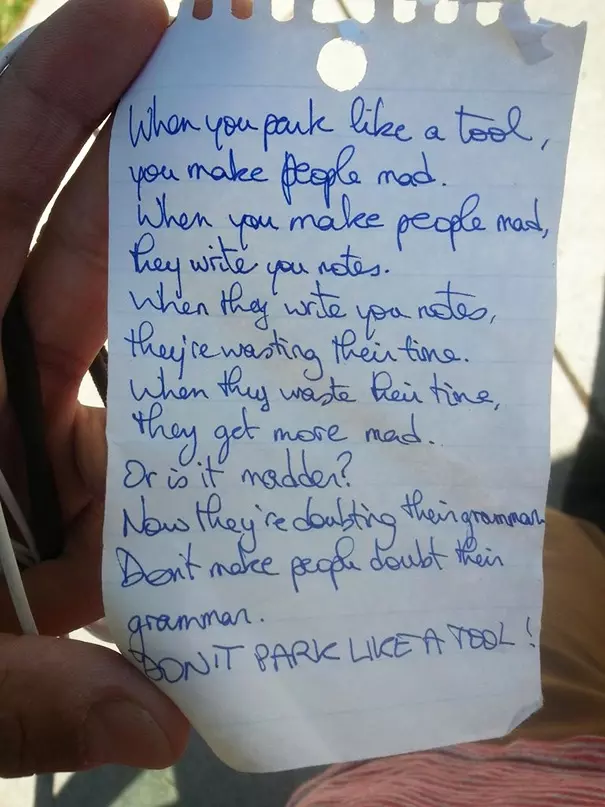 When you park like a tool,
you make people mad.
When you make people mad,
they write you notes.
When they write you notes,
they're wasting their time.
When they waste their time,
they get more mad.
Or is it madder?
Now they're doubting their grammar
Don't make people doubt their
grammar.
DON'T PARK LIKE A TOOL!